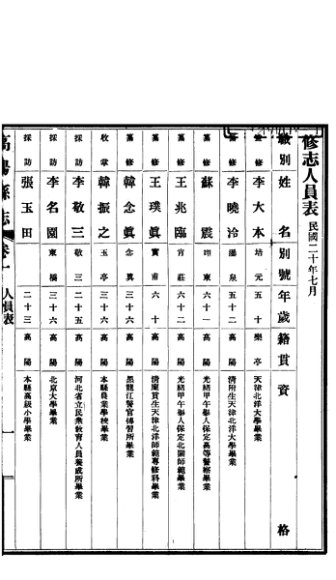 修志人員表 民國二十年七月
職別 姓名 別號 年歲 籍貫 資格
李大本 培元 五十 樂亭 天津北洋大學畢業
李曉泠 泉 五十二 高陽 清附生天津北洋大學畢業
蘇震 東 六十一 高陽 光緒甲午舉人保定高等警察畢業
王兆臨 莊 六十二 高陽 光緒甲午舉人保定北關師範畢業
王璞眞 甫 六十 高陽 清廩貢生天津北洋師範專修科畢業
韓念眞 念眞 三十六 高陽 黑龍江警官傳習所畢業
收掌 韓振之 玉亭 三十六 高陽 本縣農業學校畢業
採訪 李敬三 敬三 二十五 高陽 河北省立民衆教育人員養成所畢業
採訪 李名園 東橋 三十六 高陽 北京大學畢業
採訪 張玉田 二十三 高陽 本縣高級小學畢業
高陽縣志 卷一 人員表 一